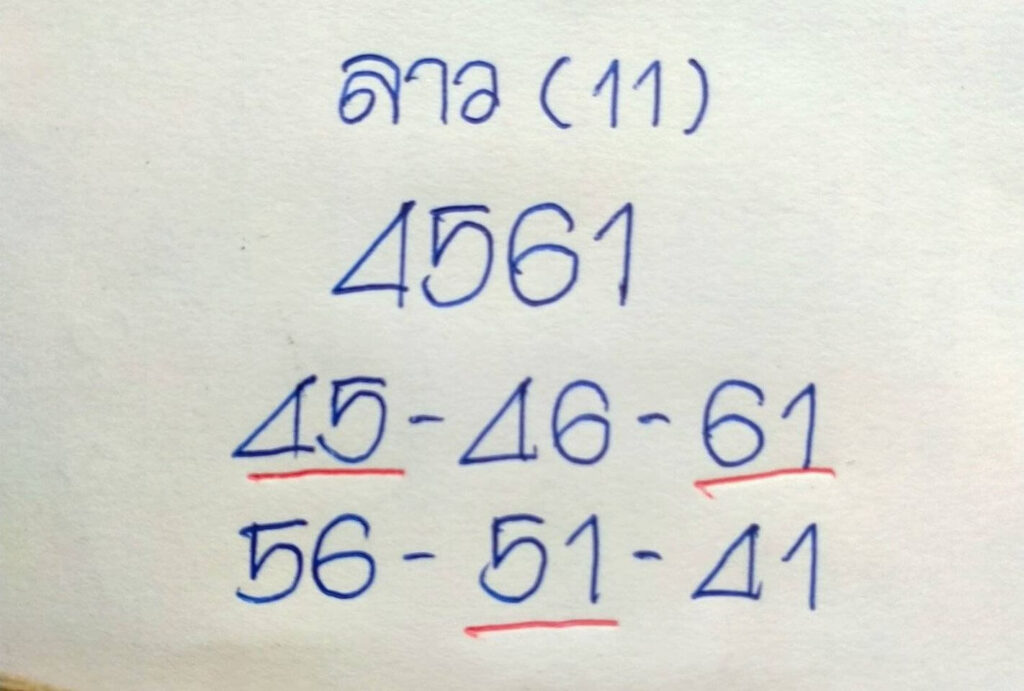 ลาว (11)
4561
45 - 46 - 61
56 - 51 - 41